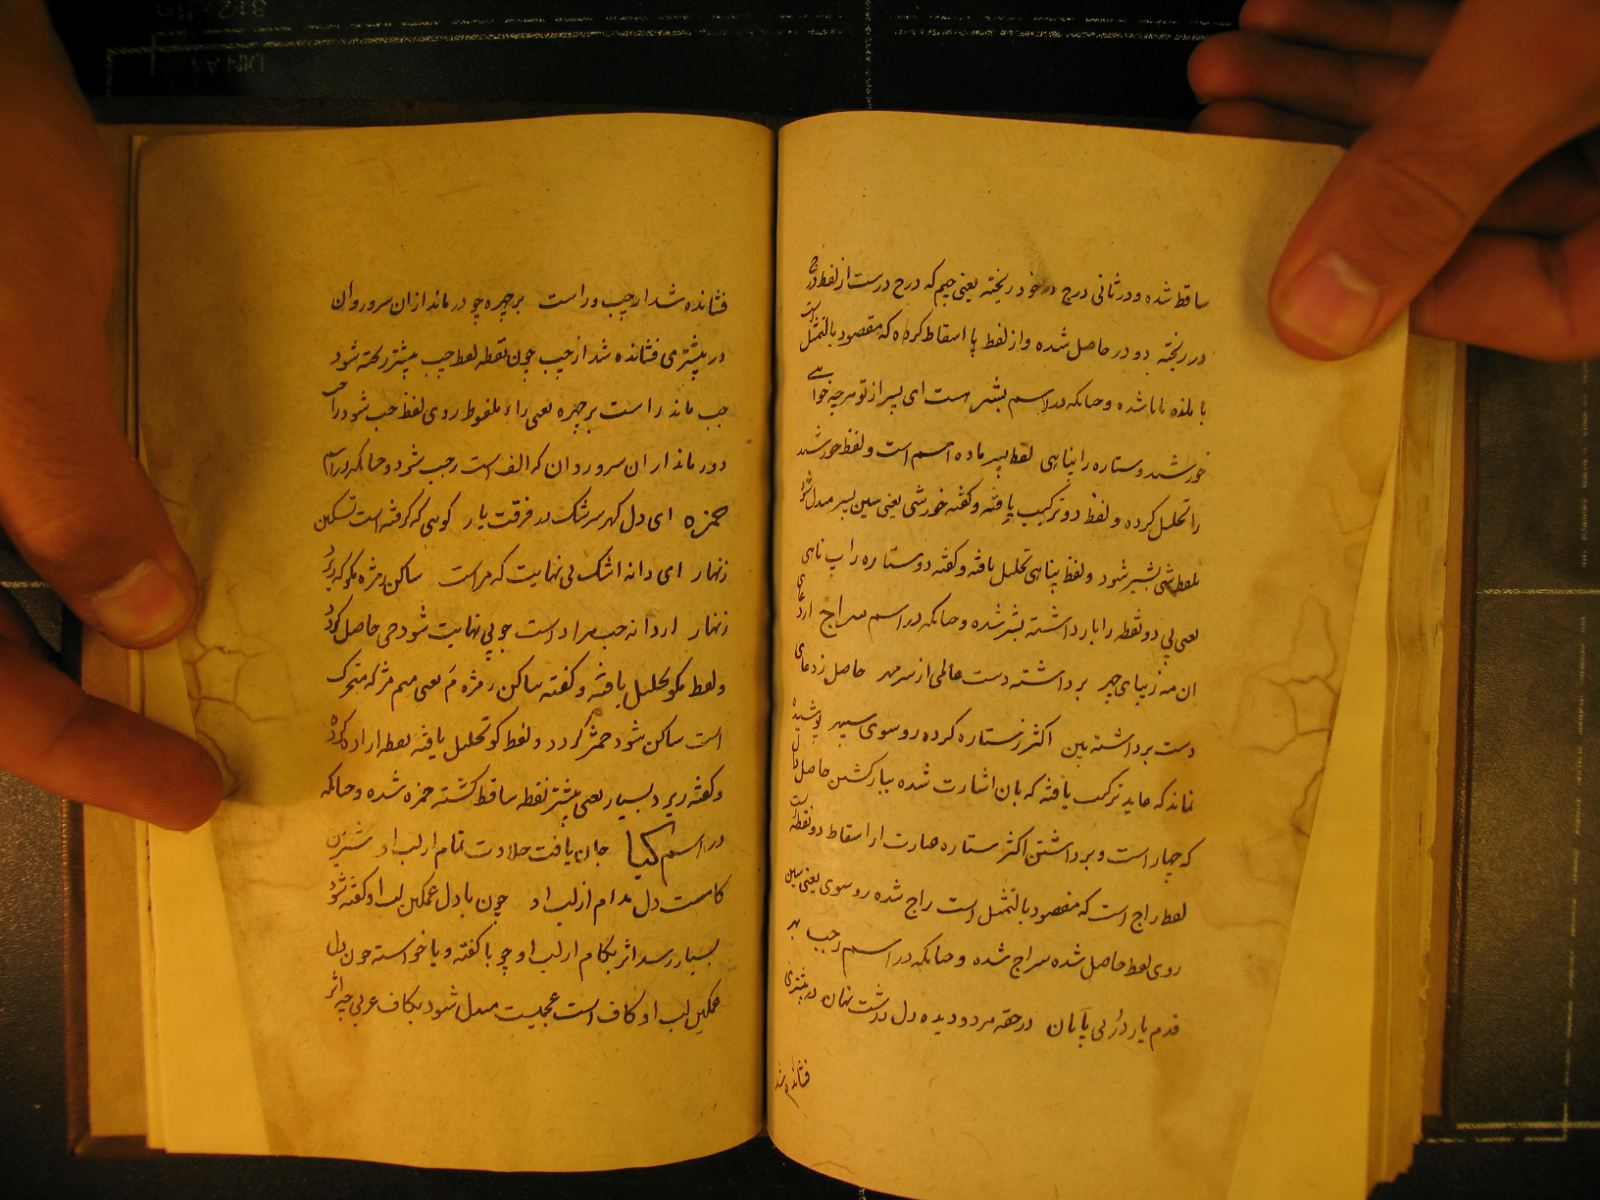 ساقط شده و در ثانی درج در خود ریخته یعنی جیم که درج درست از لفظ درج
در ریخته دو در حاصل شده و از لفظ پا اسقاط کرده که مقصود بالتمثیل است
شده و چنانکه در اسم بشیر است ای پسر از تو هر چه خواهی
خورشید و ستاره را پناهی لفظ پسر ماده اسم است و لفظ خورشید
را تحلیل کرده و لفظ دو ترکیب یافته و گفته خورشی یعنی سین پسر مبدل شود
بلفظ شی بشیر شود و لفظ پناهی تحلیل یافته و گفته دو ستاره را ب ناهی
یعنی پی دو نقطه را با برداشته بشر شده و چنانکه در اسم سراج از دعای
ان مه زیبای چهر برداشته دست عالمی از سر مهر حاصل ز دعای
دست برداشته بین اکثر ز ستاره کرده رو سوی سپهر پوشیده
نماند که ترکیب یافته که بان اشارت شده حاصل
که چهار است و برداشتن اکثر ستاره عبارت از اسقاط دو نقطه است
لفظ راج است که مقصود بالتمثیل است راج شده رو سوی یعنی سین
روی لفظ حاصل شده سراج شده و چنانکه در اسم رجب بهر
قدم یار در بی پایان در حقه مردو دیده دل داشت نهان در بیشتری
فشانده شد
فشانده شد از چپ و راست بر چهره چو در ماند ازان سرو روان
در بیشتری فشانده شد از چپ چون نقطه لفظ چپ بیشتر ریخته شود
حب ماند راست بر چهره یعنی راء ملفوظ روی لفظ حب شود
دور ماند از ان سرو روان که الف است رجب شود و چنانکه در اسم
حمزه ای دل گهر سرشک در فرقت یار گوهی که گرفته است تسکین
زنهار ای دانه اشک بی نهایت که مراست ساکن ز مژه مگو که ریزد
زنهار از دانه حب مراد است چو بی نهایت شود حی حاصل گردد
و لفظ مگو تحلیل یافته و گفته ساکن ز مژه م یعنی میم مژه که متحرک
است ساکن شود حمژه گردد و لفظ گو تحلیل یافته نقطه اراده کرده
و گفته ریزد بسیار یعنی بیشتر نقطه ساقط گشته حمزه شده و چنانکه
در اسم کیا جان یافت حلاوت تمام از لب او شیرین
کامست دل مدام از لب او چون با دل غمگین لب او گفته شود
بسیار رسد اثر بکام از لب او چو با گفته و یا خواسته چون دل
غمگین لب او کاف است عجمیت مبدل شود بکاف عربی چه اثر